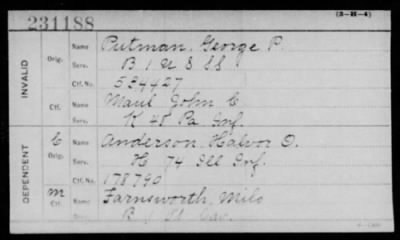 231188
(3-H-4)
INVALID
Orig.
Name Putman, George P.
Serv. B 1 U S SS
Ctf. No. 534427
Ctf.
Name Maul John C
Serv. K 48 Pa Inf.
DEPENDENT
C
Orig.
Name Anderson, Halvor O.
Serv. H 74 Ill Inf.
Ctf. No. 178790
M
Ctf.
Name Farnsworth, Milo
Serv. B 1 Cav.